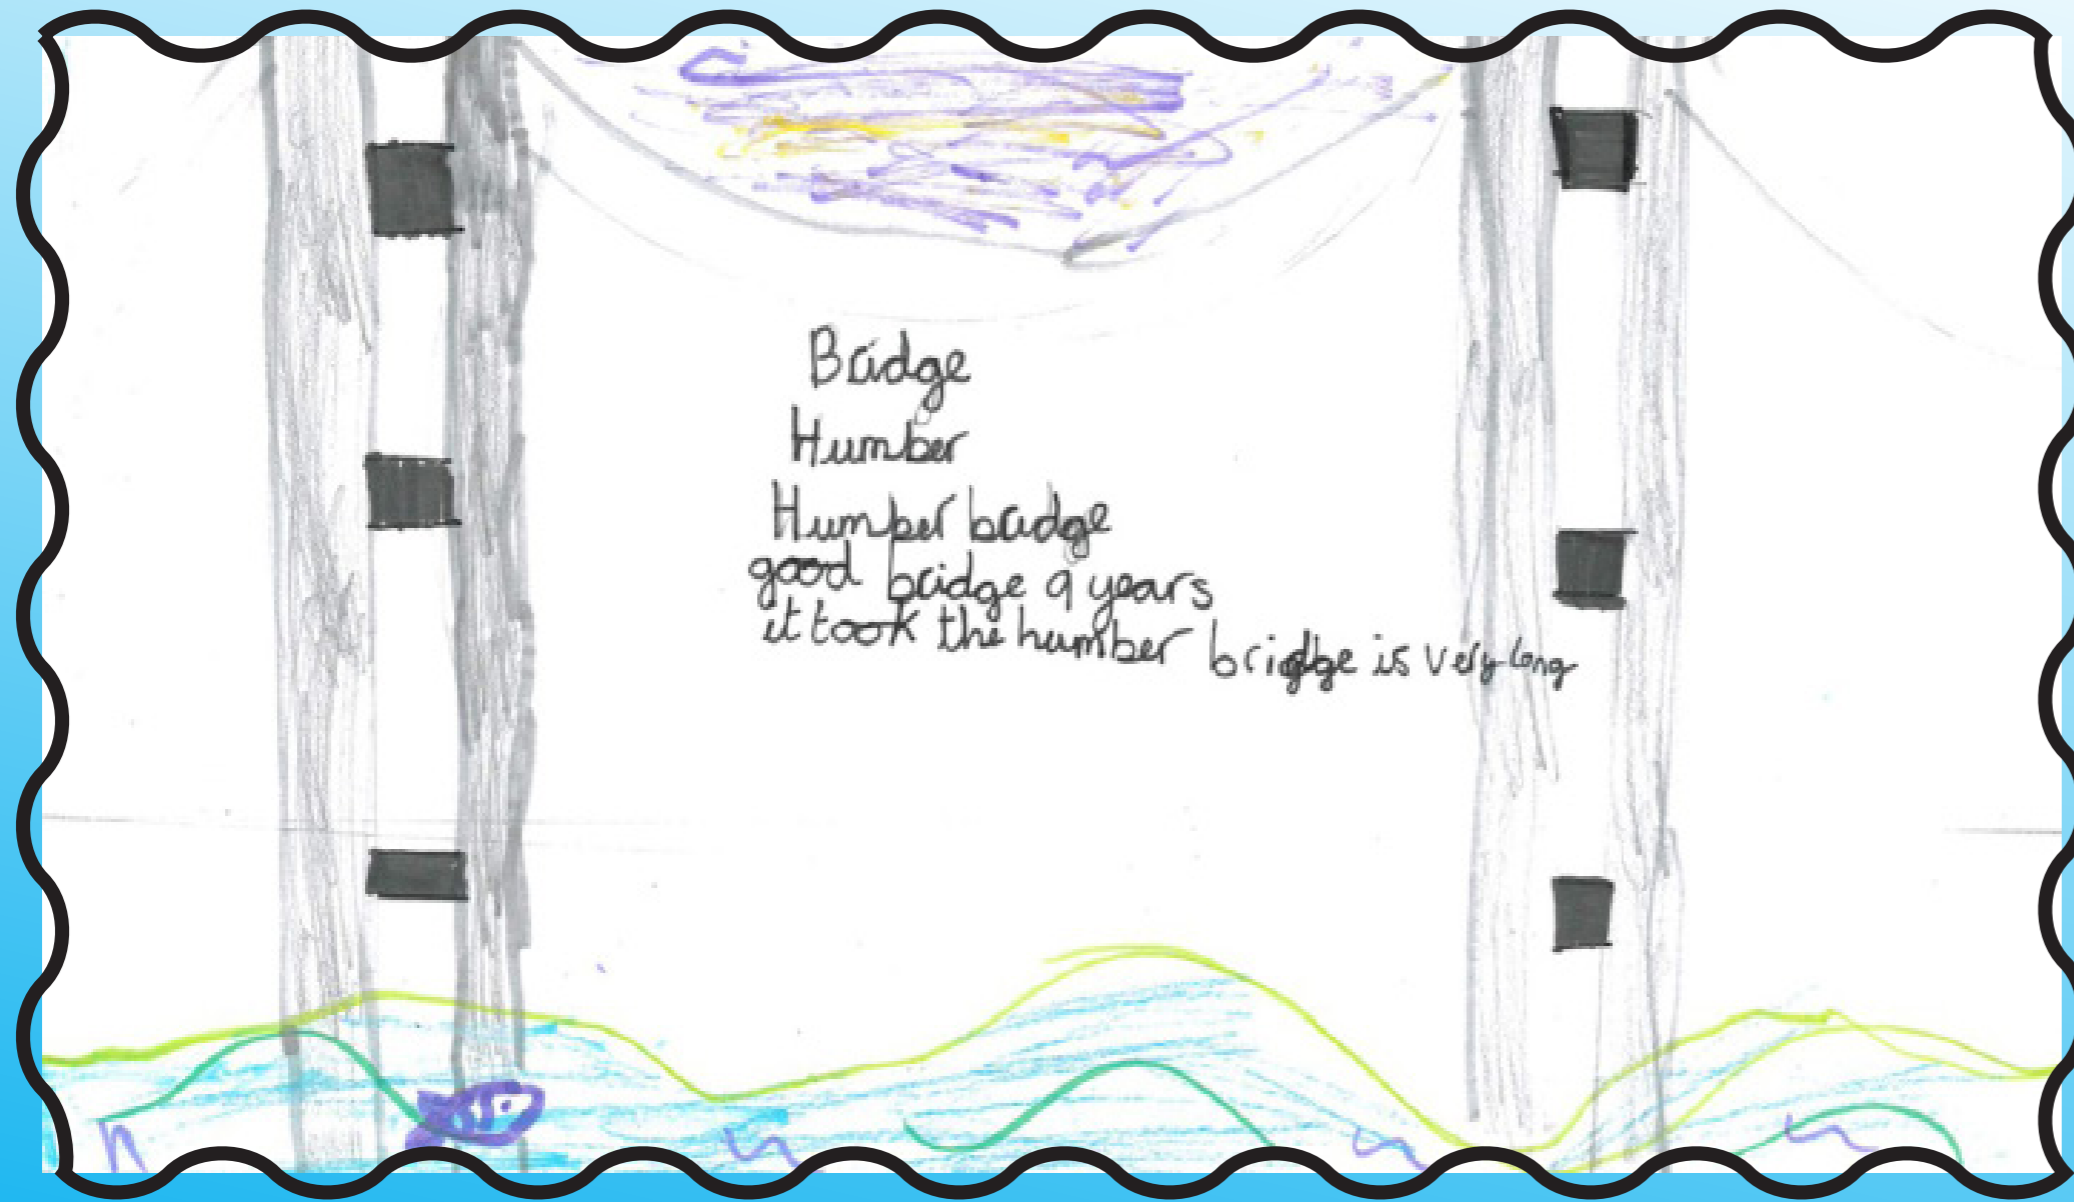 Bridge
Humber
Humber bridge
good bridge 9 years
it took the humber bridge is very long